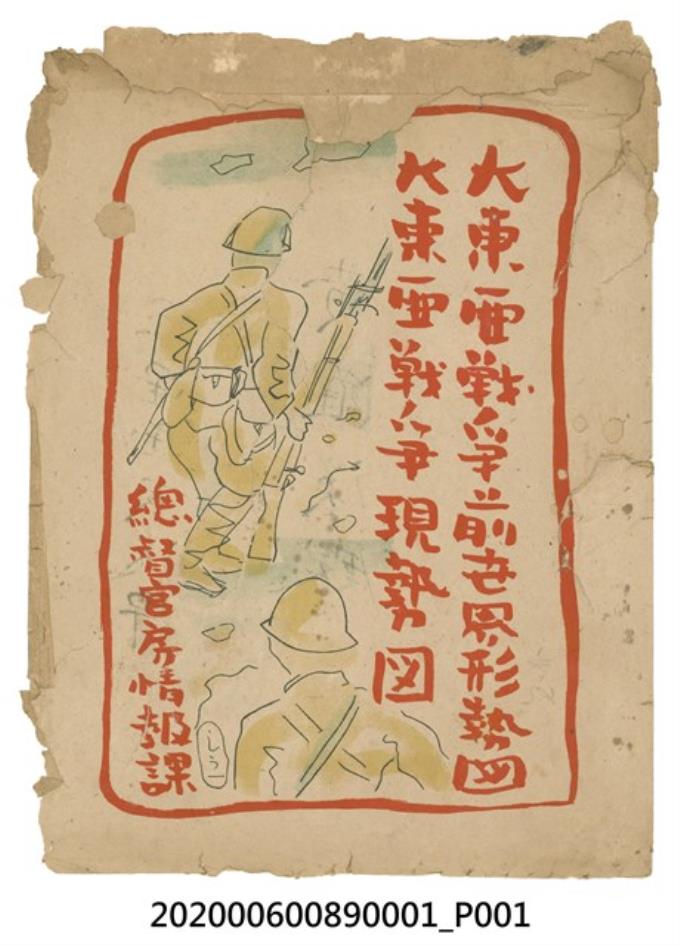 大東亜戦争前世界形勢図
大東亜戦争現勢図
總督官房情報課
202000600890001_P001